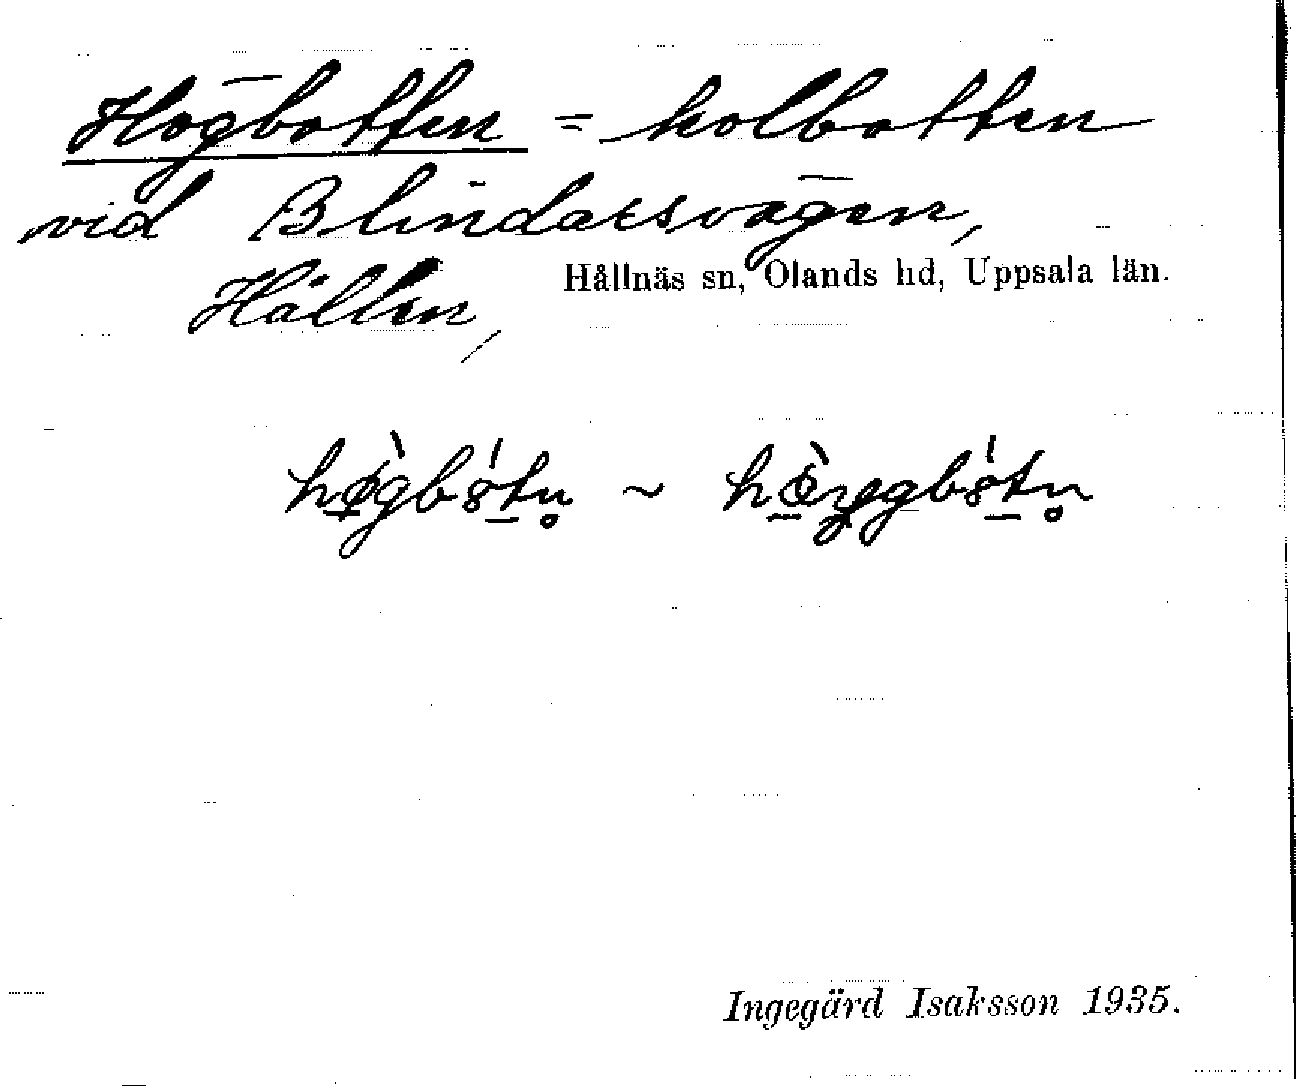 Högbotten = kolbotten
vid Blindarsvägen,
Hållen,
Hållnäs sn, Olands hd, Uppsala län.
Ingegärd Isaksson 1935.